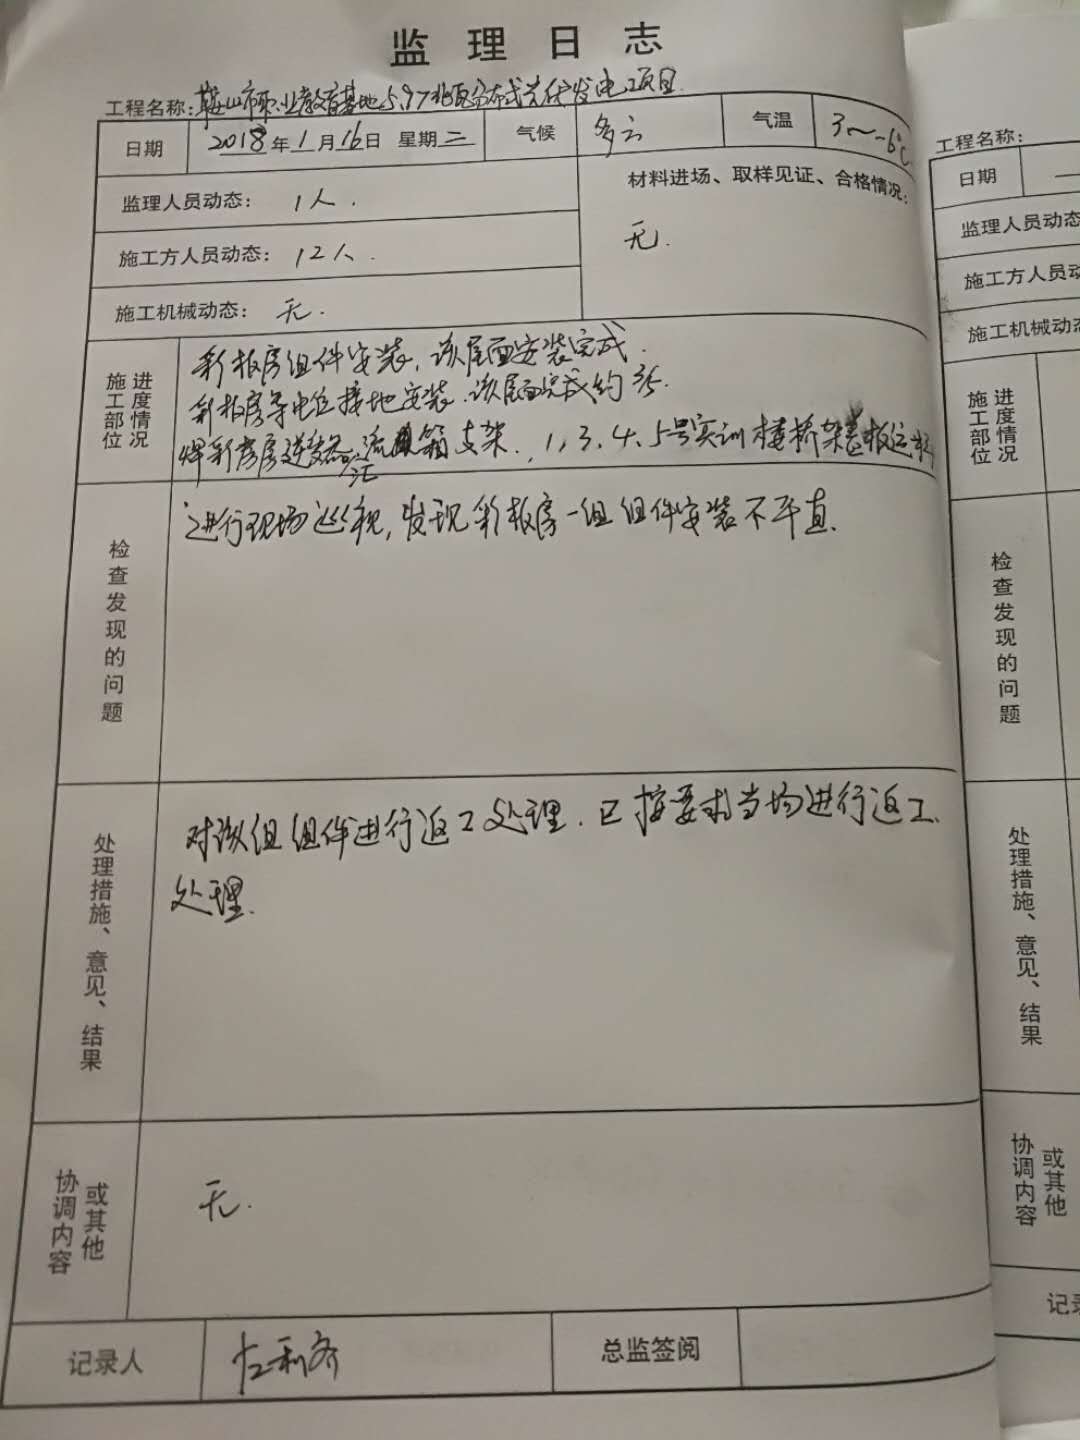 监理日志
工程名称：鞍山市职业教育基地5.97兆瓦分布式光伏发电项目
日期 2018年1月16日 星期二 气候 多云 气温 3～-6℃
监理人员动态： 1人.
材料进场、取样见证、合格情况：
无.
施工方人员动态： 12人.
施工机械动态： 无.
施工部位
进度情况
彩板房组件安装，该屋面安装完成.
彩板房等电位接地安装.该屋面完成约
焊彩房逆变器、汇流箱支架.，1,3,4,5号实训楼桥架盖板运
检查发现的问题
进行现场巡视,发现彩板房一组组件安装不平直.
处理措施、意见、结果
对该组组件进行返工处理.已按要求当场进行返工
处理.
协调内容
或其他
无.
记录人
总监签阅
工程名称：
日期
监理人员动态
施工方人员动
施工机械动态
施工部位
进度情况
检查发现的问题
处理措施、意见、结果
协调内容
或其他
记录